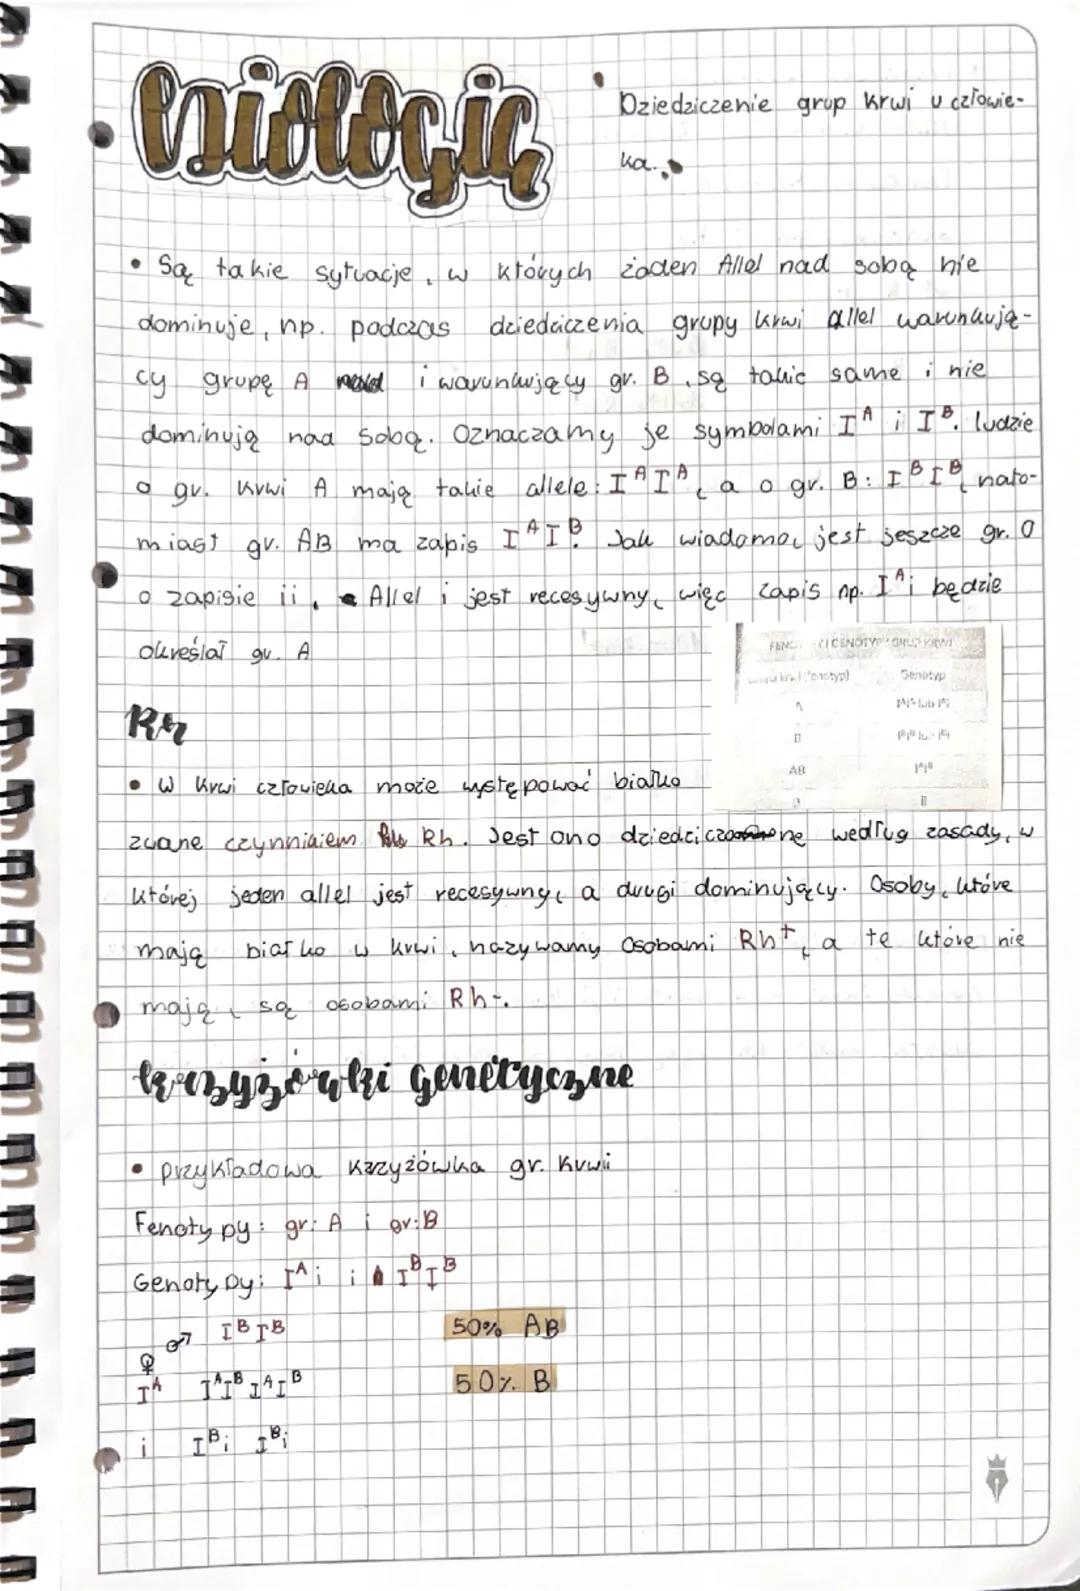 biologia
Dziedziczenie grup krwi u człowie-
ka.
• Są takie sytuacje, w których żaden Allel nad sobą nie
dominuje, np. podczas dziedziczenia grupy krwi allel warunkują-
cy grupę A i warunkujący gr. B, są takie same i nie
dominują nad sobą. Oznaczamy je symbolami Iᴬ i Iᴮ. ludzie
o gr. krwi A mają takie allele: IᴬIᴬ, a o gr. B: IᴮIᴮ, nato-
miast gr. AB ma zapis IᴬIᴮ. Jak wiadomo, jest jeszcze gr. 0
o zapisie ii. Allel i jest recesywny, więc zapis np. Iᴬi będzie
określał gr. A
FENOTYPY I GENOTYPY GRUP KRWI
Grupa krwi (fenotyp) Genotyp
A IᴬIᴬ lub Iᴬi
B IᴮIᴮ lub Iᴮi
AB IᴬIᴮ
0 ii
Rh
• W krwi człowieka może występować białko
zwane czynnikiem Rh. Jest ono dziedziczone według zasady, w
której jeden allel jest recesywny, a drugi dominujący. Osoby, które
mają białko w krwi, nazywamy osobami Rh+, a te które nie
mają, są osobami Rh-.
krzyżówki genetyczne
• przykładowa krzyżówka gr. krwi
Fenotypy: gr: A i gr: B
Genotypy: Iᴬi i IᴮIᴮ
♀ ♂ Iᴮ Iᴮ 50% AB
Iᴬ IᴬIᴮ IᴬIᴮ 50% B
i Iᴮi Iᴮi